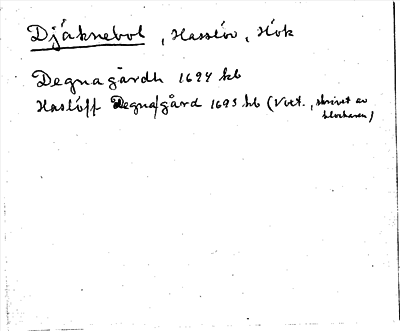 Djäknebol, Hasslöv, Hök
Degnagårdh 1694 kb
Haslöff Degnagård 1695 kb (Vitt., skrivet av
klockaren)